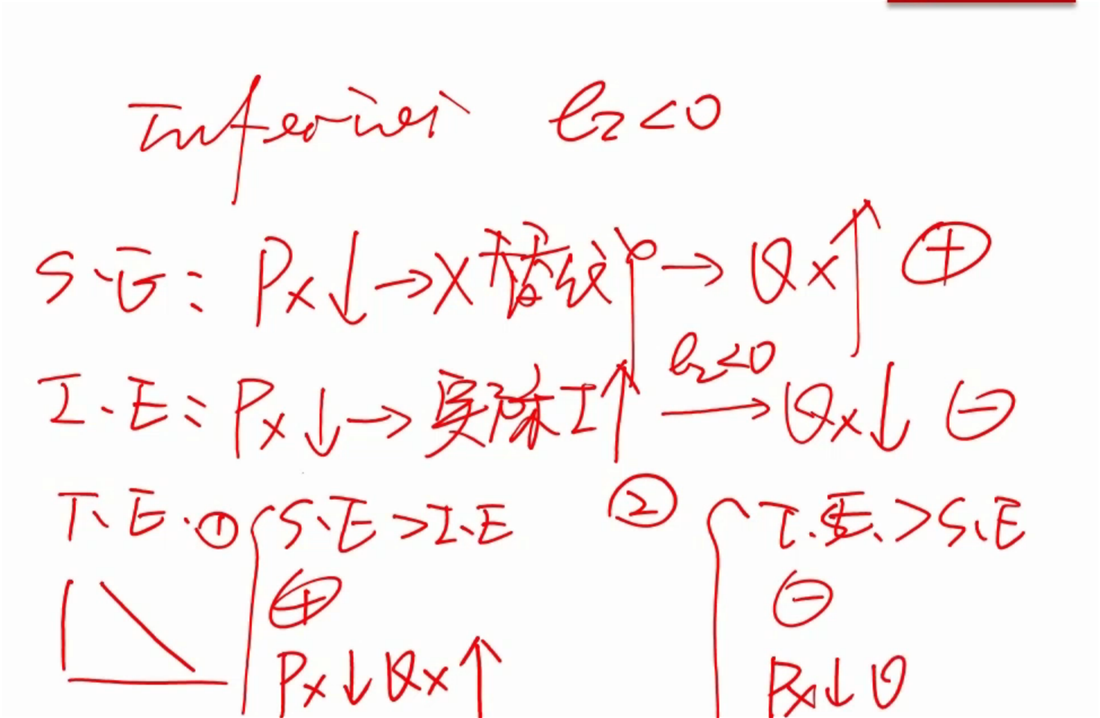 Inferior e₂<0
S.E: Px↓→X替代↑→Qx↑ ⊕
I.E: Px↓→实际I↑ e₂<0→ Qx↓ ⊖
T.E. ① S.E>I.E
⊕
Px↓Qx↑
② I.E.>S.E
⊖
Px↓Q